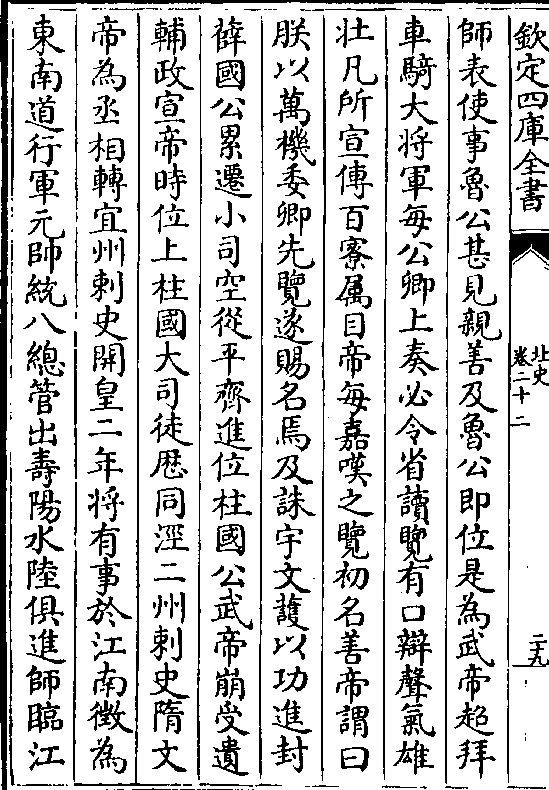 欽定四庫全書
北史
卷二十二
二十九
師表使事魯公甚見親善及魯公即位是為武帝超拜
車騎大將軍每公卿上奏必令省讀覽有口辯聲氣雄
壮凡所宣傳百寮属目帝每嘉嘆之覽初名善帝謂曰
朕以萬機委卿先覽遂賜名焉及誅宇文護以功進封
薛國公累遷小司空從平齊進位柱國公武帝崩受遺
輔政宣帝時位上柱國大司徒歴同涇二州刺史隋文
帝為丞相轉宜州刺史開皇二年將有事於江南徵為
東南道行軍元帥統八總管出壽陽水陸俱進師臨江